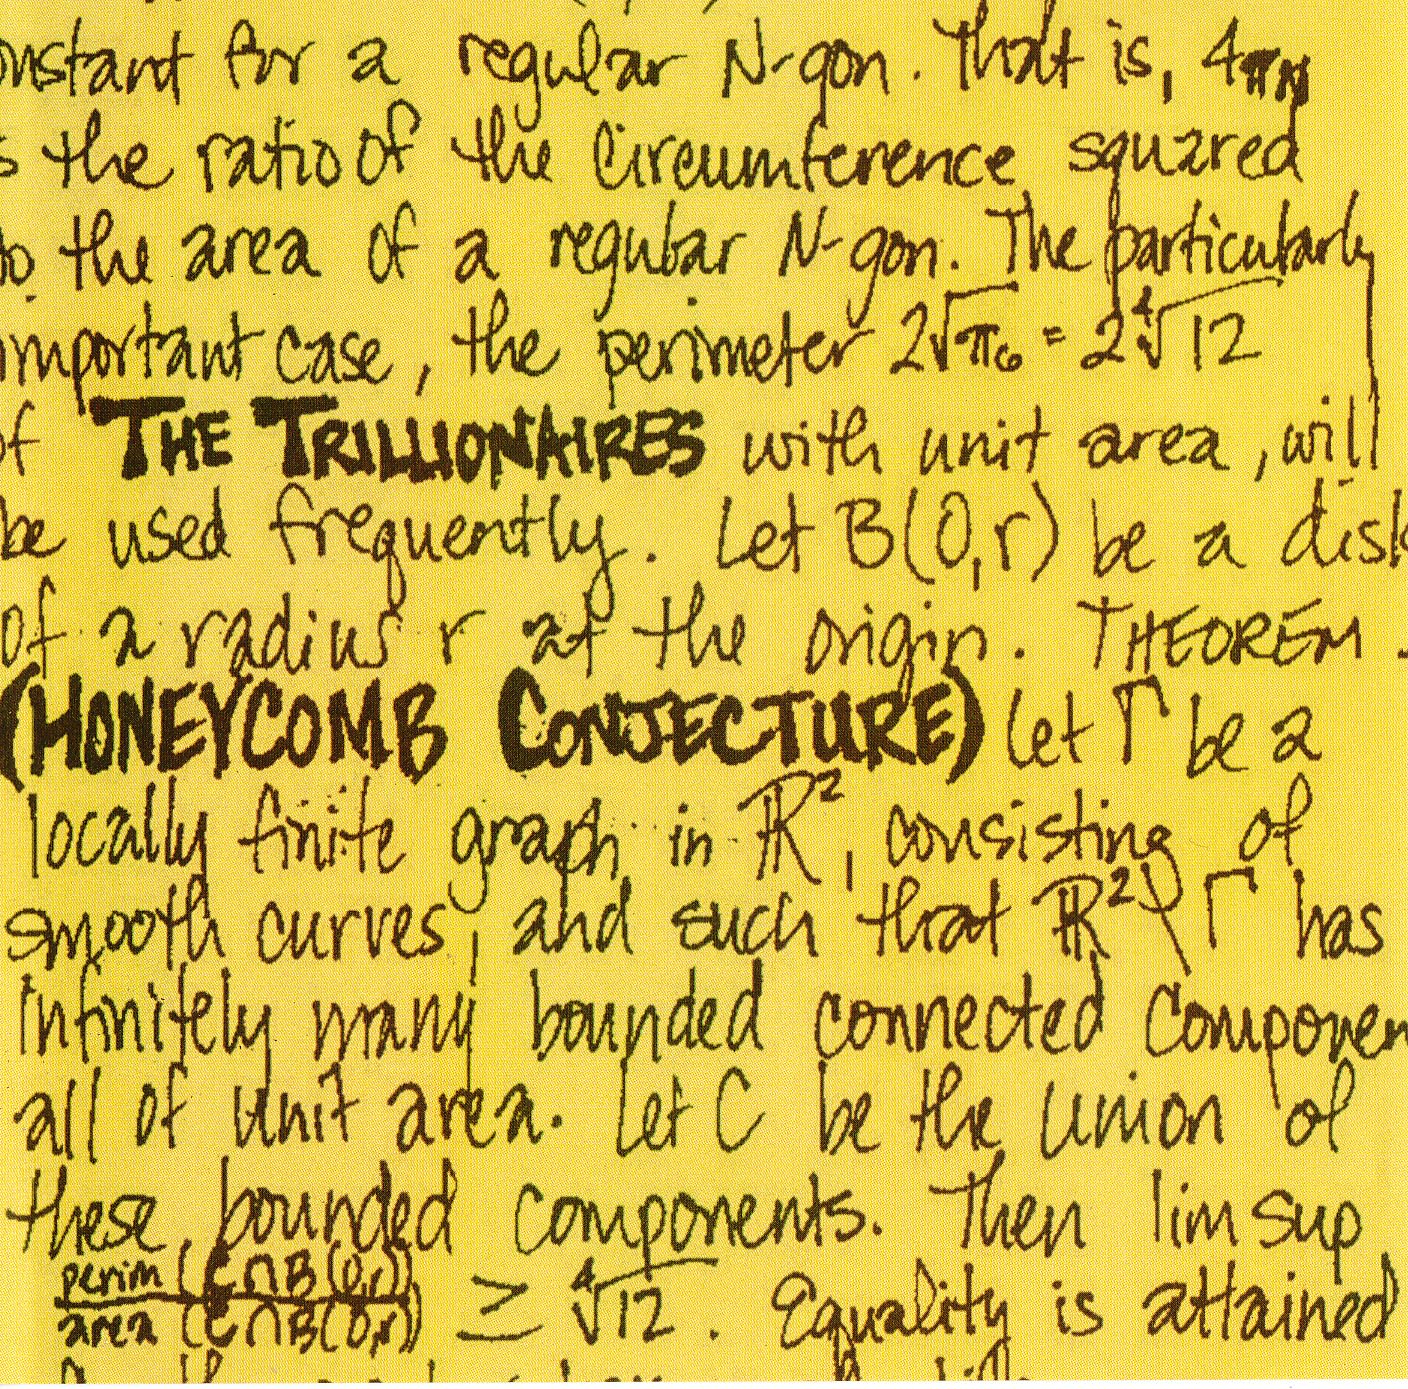 onstant for a regular N-gon. That is, 4πN
s the ratio of the Circumference squared
to the area of a regular N-gon. The particularly
important case, the perimeter 2√π6 = 2∜12
of THE TRILLIONAIRES with unit area, will
be used frequently. Let B(0,r) be a disk
of a radius r at the origin. THEOREM.
(HONEYCOMB CONJECTURE) Let Γ be a
locally finite graph in ℝ², consisting of
smooth curves, and such that ℝ²\Γ has
infinitely many bounded connected Componen
all of Unit area. Let C be the union of
these bounded components. Then lim sup
perim (C∩B(0,r))
area (C∩B(0,r)) ≥ ∜12. Equality is attained